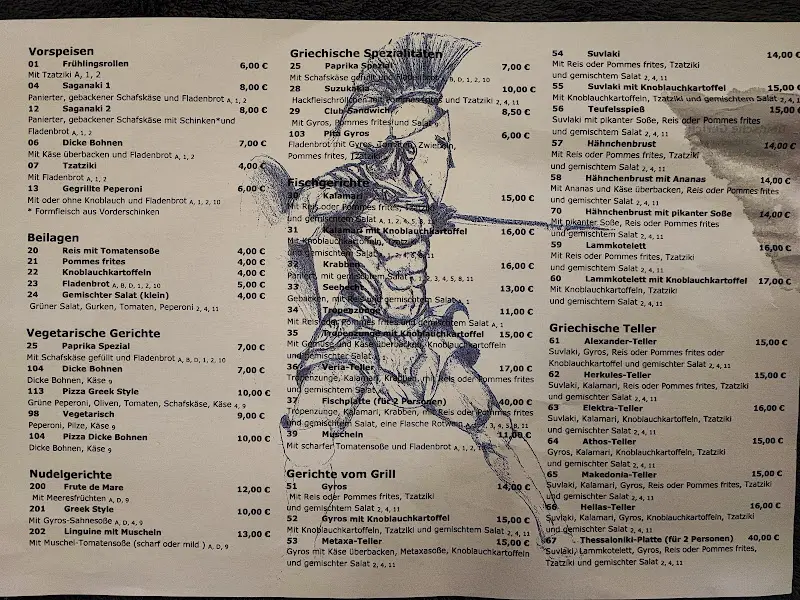 Vorspeisen
01 Frühlingsrollen 6,00 €
Mit Tzatziki A, 1, 2
04 Saganaki 1 8,00 €
Panierter, gebackener Schafskäse und Fladenbrot A, 1, 2
12 Saganaki 2 8,00 €
Panierter, gebackener Schafskäse mit Schinken*und
Fladenbrot A, 1, 2
06 Dicke Bohnen 7,00 €
Mit Käse überbacken und Fladenbrot A, 1, 2
07 Tzatziki 4,00 €
Mit Fladenbrot A, 1, 2
13 Gegrillte Peperoni 6,00 €
Mit oder ohne Knoblauch und Fladenbrot A, 1, 2, 10
* Formfleisch aus Vorderschinken
Beilagen
20 Reis mit Tomatensoße 4,00 €
21 Pommes frites 4,00 €
22 Knoblauchkartoffeln 4,00 €
23 Fladenbrot A, B, D, 1, 2, 10 5,00 €
24 Gemischter Salat (klein) 4,00 €
Grüner Salat, Gurken, Tomaten, Peperoni 2, 4, 11
Vegetarische Gerichte
25 Paprika Spezial 7,00 €
Mit Schafskäse gefüllt und Fladenbrot A, B, D, 1, 2, 10
104 Dicke Bohnen 7,00 €
Dicke Bohnen, Käse 9
113 Pizza Greek Style
Grüne Peperoni, Oliven, Tomaten, Schafskäse, Käse 4, 9
98 Vegetarisch 9,00 €
Peperoni, Pilze, Käse 9
104 Pizza Dicke Bohnen 10,00 €
Dicke Bohnen, Käse 9
Nudelgerichte
200 Frute de Mare 12,00 €
Mit Meeresfrüchten A, D, 9
201 Greek Style 10,00 €
Mit Gyros-Sahnesoße A, D, 4, 9
202 Linguine mit Muscheln 13,00 €
Mit Muschel-Tomatensoße (scharf oder mild ) A, D, 9
Griechische Spezialitäten
25 Paprika Spezial 7,00 €
Mit Schafskäse gefüllt und Fladenbrot A, B, D, 1, 2, 10
28 Suzukakia 10,00 €
Hackfleischröllchen mit Pommes frites und Tzatziki 2, 4, 11
29 Club-Sandwich 8,50 €
Mit Gyros, Pommes frites und Salat
103 Pita Gyros 6,00 €
Fladenbrot mit Gyros, Tomaten, Zwiebeln,
Pommes frites, Tzatziki
Fischgerichte
30 Kalamari 15,00 €
Mit Reis oder Pommes frites, Tzatziki
und gemischtem Salat A, 1, 2, 4, 5, 8, 11
31 Kalamari mit Knoblauchkartoffel 16,00 €
Mit Knoblauchkartoffeln, Tzatziki
und gemischtem Salat
32 Krabben 16,00 €
Paniert, mit gemischtem Salat 1, 2, 3, 4, 5, 8, 11
33 Seehecht 13,00 €
Gebacken, mit Reis und gemischtem Salat
34 Tropenzunge 11,00 €
Mit Reis oder Pommes frites und gemischtem Salat A, 1
35 Tropenzunge mit Knoblauchkartoffel 15,00 €
Mit Gemüse und Käse überbacken, Knoblauchkartoffeln
und gemischtem Salat
36 Veria-Teller 17,00 €
Tropenzunge, Kalamari, Krabben, mit Reis oder Pommes frites
und gemischtem Salat
37 Fischplatte (für 2 Personen) 40,00 €
Tropenzunge, Kalamari, Krabben, mit Reis oder Pommes frites
und gemischtem Salat, eine Flasche Rotwein
39 Muscheln 11,00 €
Mit scharfer Tomatensoße und Fladenbrot A, 1, 2
Gerichte vom Grill
51 Gyros 14,00 €
Mit Reis oder Pommes frites, Tzatziki
und gemischtem Salat 2, 4, 11
52 Gyros mit Knoblauchkartoffel 15,00 €
Mit Knoblauchkartoffeln, Tzatziki und gemischtem Salat 2, 4, 11
53 Metaxa-Teller 15,00 €
Gyros mit Käse überbacken, Metaxasoße, Knoblauchkartoffeln
und gemischter Salat 2, 4, 11
54 Suvlaki 14,00 €
Mit Reis oder Pommes frites, Tzatziki
und gemischtem Salat 2, 4, 11
55 Suvlaki mit Knoblauchkartoffel 15,00 €
Mit Knoblauchkartoffeln, Tzatziki und gemischtem Salat 2, 4, 11
56 Teufelsspieß 15,00 €
Suvlaki mit pikanter Soße, Reis oder Pommes frites
und gemischtem Salat 2, 4, 11
57 Hähnchenbrust 14,00 €
Mit Reis oder Pommes frites, Tzatziki
und gemischtem Salat 2, 4, 11
58 Hähnchenbrust mit Ananas 14,00 €
Mit Ananas und Käse überbacken, Reis oder Pommes frites
und gemischtem Salat 2, 4, 11
70 Hähnchenbrust mit pikanter Soße 14,00 €
Mit pikanter Soße, Reis oder Pommes frites
und gemischtem Salat 2, 4, 11
59 Lammkotelett 16,00 €
Mit Reis oder Pommes frites, Tzatziki
und gemischtem Salat 2, 4, 11
60 Lammkotelett mit Knoblauchkartoffel 17,00 €
Mit Knoblauchkartoffeln, Tzatziki
und gemischtem Salat 2, 4, 11
Griechische Teller
61 Alexander-Teller 15,00 €
Suvlaki, Gyros, Reis oder Pommes frites oder
Knoblauchkartoffel und gemischter Salat 2, 4, 11
62 Herkules-Teller 15,00 €
Suvlaki, Kalamari, Reis oder Pommes frites, Tzatziki
und gemischter Salat 2, 4, 11
63 Elektra-Teller 16,00 €
Suvlaki, Kalamari, Knoblauchkartoffeln, Tzatziki
und gemischter Salat 2, 4, 11
64 Athos-Teller 15,00 €
Gyros, Kalamari, Knoblauchkartoffeln, Tzatziki
und gemischter Salat 2, 4, 11
65 Makedonia-Teller 15,00 €
Suvlaki, Kalamari, Gyros, Reis oder Pommes frites, Tzatziki
und gemischter Salat 2, 4, 11
66 Hellas-Teller 16,00 €
Suvlaki, Kalamari, Gyros, Knoblauchkartoffeln, Tzatziki
und gemischter Salat 2, 4, 11
67 Thessaloniki-Platte (für 2 Personen) 40,00 €
Suvlaki, Lammkotelett, Gyros, Reis oder Pommes frites,
Tzatziki und gemischter Salat 2, 4, 11